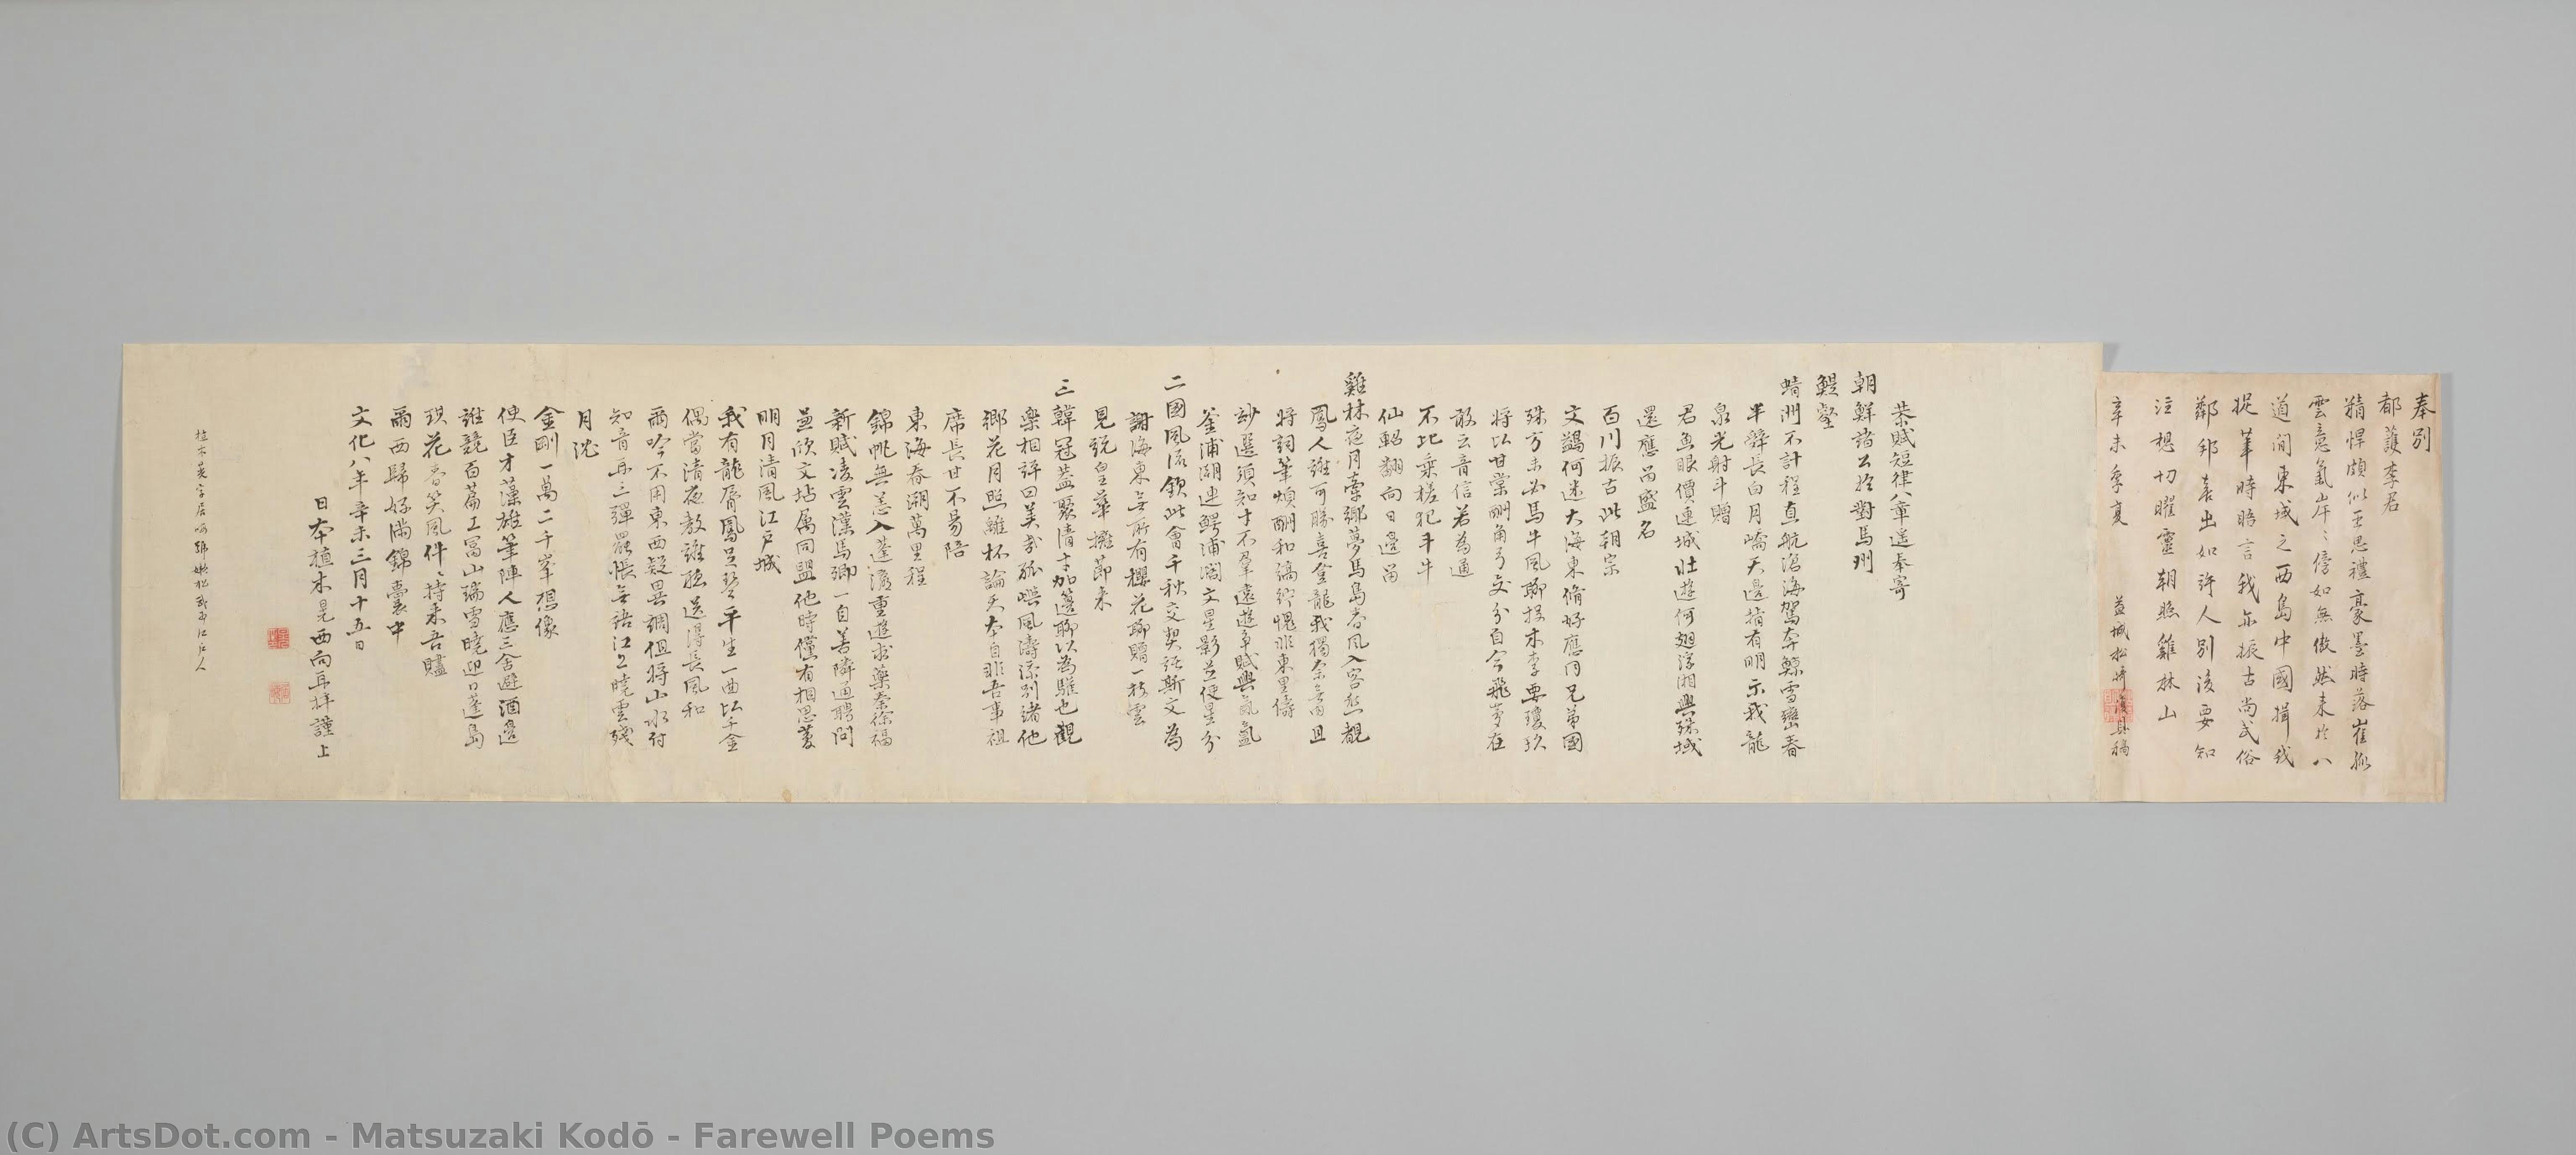 奉別
都護李君
精悍頗似王思禮豪墨時落崔孤
雲意氣岸々傍如無傲然來於八
道間東域之西島中國揖我
捉筆時晤言我亦振古尚武俗
鄰邦表出如許人別後要知
注想切曜靈朝照雞林山
辛未季夏 益城松崎復具稿
恭賦短律八章遥奉寄
朝鮮諸公於對馬州
鯷壑
蜻洲不計程直航滄海駕奔鯨雪巒春
半舜長白月嶠天邊指有明示我龍
泉光射斗贈
君魚眼價連城壮遊何廻浮湘興殊域
還應留盛名
百川振古此朝宗
文鷁何迷大海東脩好應同兄弟國
殊方未必馬牛風聊投木李要瓊玖
将以甘棠酬角弓交分自今飛夢在
敢云音信若為通
不比乗槎犯斗牛
仙軺翻向日邊留
雞林夜月牽郷夢馬島春風入客愁覩
鳳人誰可勝喜登龍我獨奈無由且
将詞筆煩酬和縞紵愧非東里儔
妙選須知才不羣遠遊争賦興氤氳
釜浦潮連鰐浦濶文星影共使星分
二國風流欽此會千秋交契託斯文為
謝海東無所有櫻花聊贈一枝雲
見説皇華擁節来
三韓冠蓋聚清才加籩聊以為騅也觀
樂相評曰美哉孤嶼風濤添別緒他
郷花月照離杯論交本自非吾事祖
席長甘不易陪
東海春潮萬里程
錦帆無恙入蓬瀛重遊求藥秦徐福
新賦凌雲漢馬卿一自善隣通聘問
並欣文坫属同盟他時僅有相思夢
明月清風江戸城
我有龍脣鳳足琴平生一曲比千金
偶當清夜教誰聴送得長風和
爾吟不用東西疑異調但将山水付
知音再三彈罷悵無語江上曉雲殘
月沈
金剛一萬二千峯想像
使臣才藻雄筆陣人應三舎避酒邊
誰競百篇工冨山端雪曉迎口蓬島
琪花春笑風件々持来吾贐
爾西歸好満錦囊中
文化八年辛未三月十五日
日本植木晃西向再拝謹上
(C) ArtsDot.com - Matsuzaki Kodō - Farewell Poems